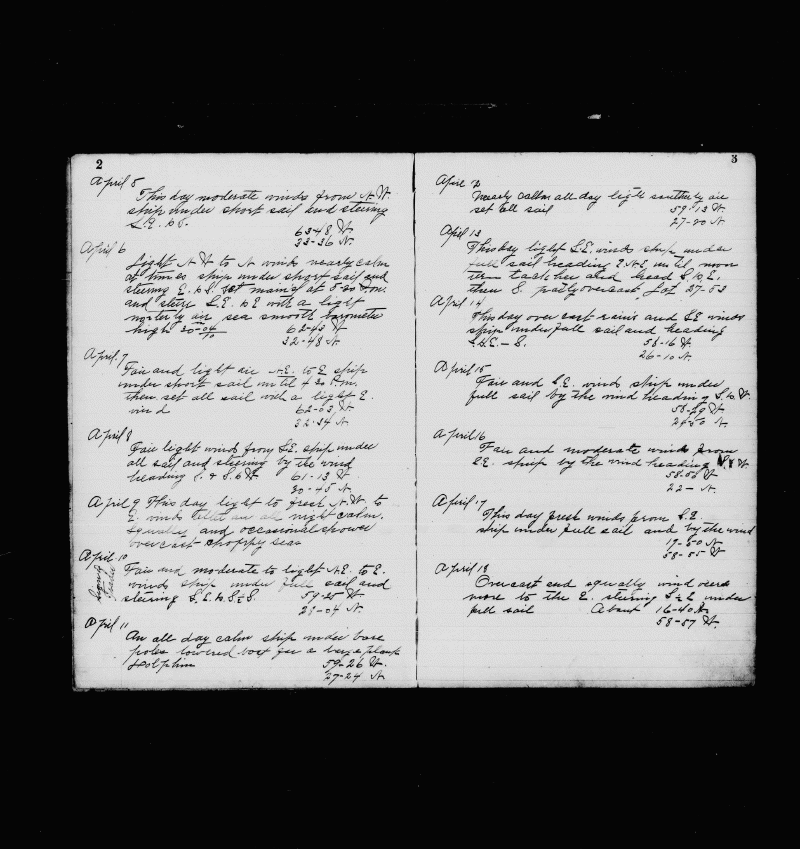 2
April 5
This day moderate winds from N.W.
ship under short sail and steering
S.E. by S.
63-48 W.
33-36 N.
April 6
Light N.W. to N winds nearly calm
at times ship under short sail and
steering E. by S. set main at 5-20
and steer S.E. by E with a light
northerly air, sea smooth barometer
high 30-04
62-43 W
32-48 N.
April 7
Fair and light air N.E. to E ship
under short sail until 4 30 P.m.
then set all sail with a light E.
wind
62-03 W
32-34 N.
April 8
Fair light winds from S.E. ship under
all sail and steering by the wind
heading S. & S. by W
61-13 W
30-45 N
April 9 This day light to fresh N.W. to
E. winds all night calm.
squalls and occasional shower
overcast choppy seas
April 10
Fair and moderate to light N.E. to E.
winds ship under full sail and
steering S.E. by S. & S.
59-25 W
28-04 N.
April 11
An all day calm ship under bare
poles lowered boat for a
dolphin
59-26 W.
27-24 N
3
April 12
Nearly calm all day light southerly air
set all sail
59-13 W.
27-20 N
April 13
This day light S.E. winds ship under
full sail heading E.N.E until noon
then tack her and head S. by E,
then S. partly overcast, Lat 27-03
April 14
This day over cast rains and S.E winds
ship under full sail and heading
S.S.E. - S.
58-16 W.
26-10 N.
April 15
Fair and S.E. winds ship under
full sail by the wind heading S. by W.
58-49 W.
24-50 N.
April 16
Fair and moderate winds from
S.E. ship by the wind heading
58-56 W
22- N.
April 17
This day fresh winds from S.E.
ship under full sail and by the wind
19-50 N
58-55 W
April 18
Overcast and squally wind
more to the E. steering S & E under
full sail About 16-40 N
58-57 W.